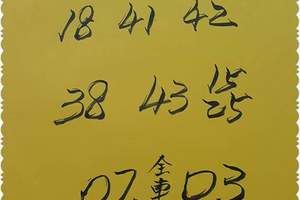 18 41 42
38 43 15 25
07 全車 03